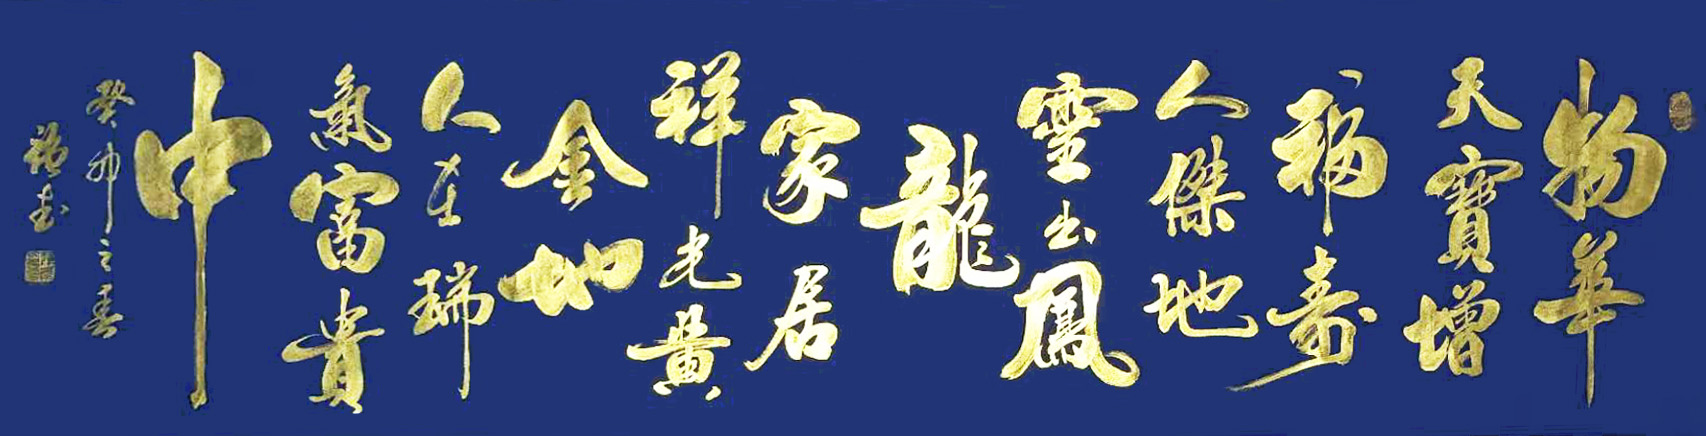 物華
天寶增
福壽
人傑地
靈出鳳
龍
家居
祥光黄
金地
人在瑞
氣富貴
中
癸卯之春